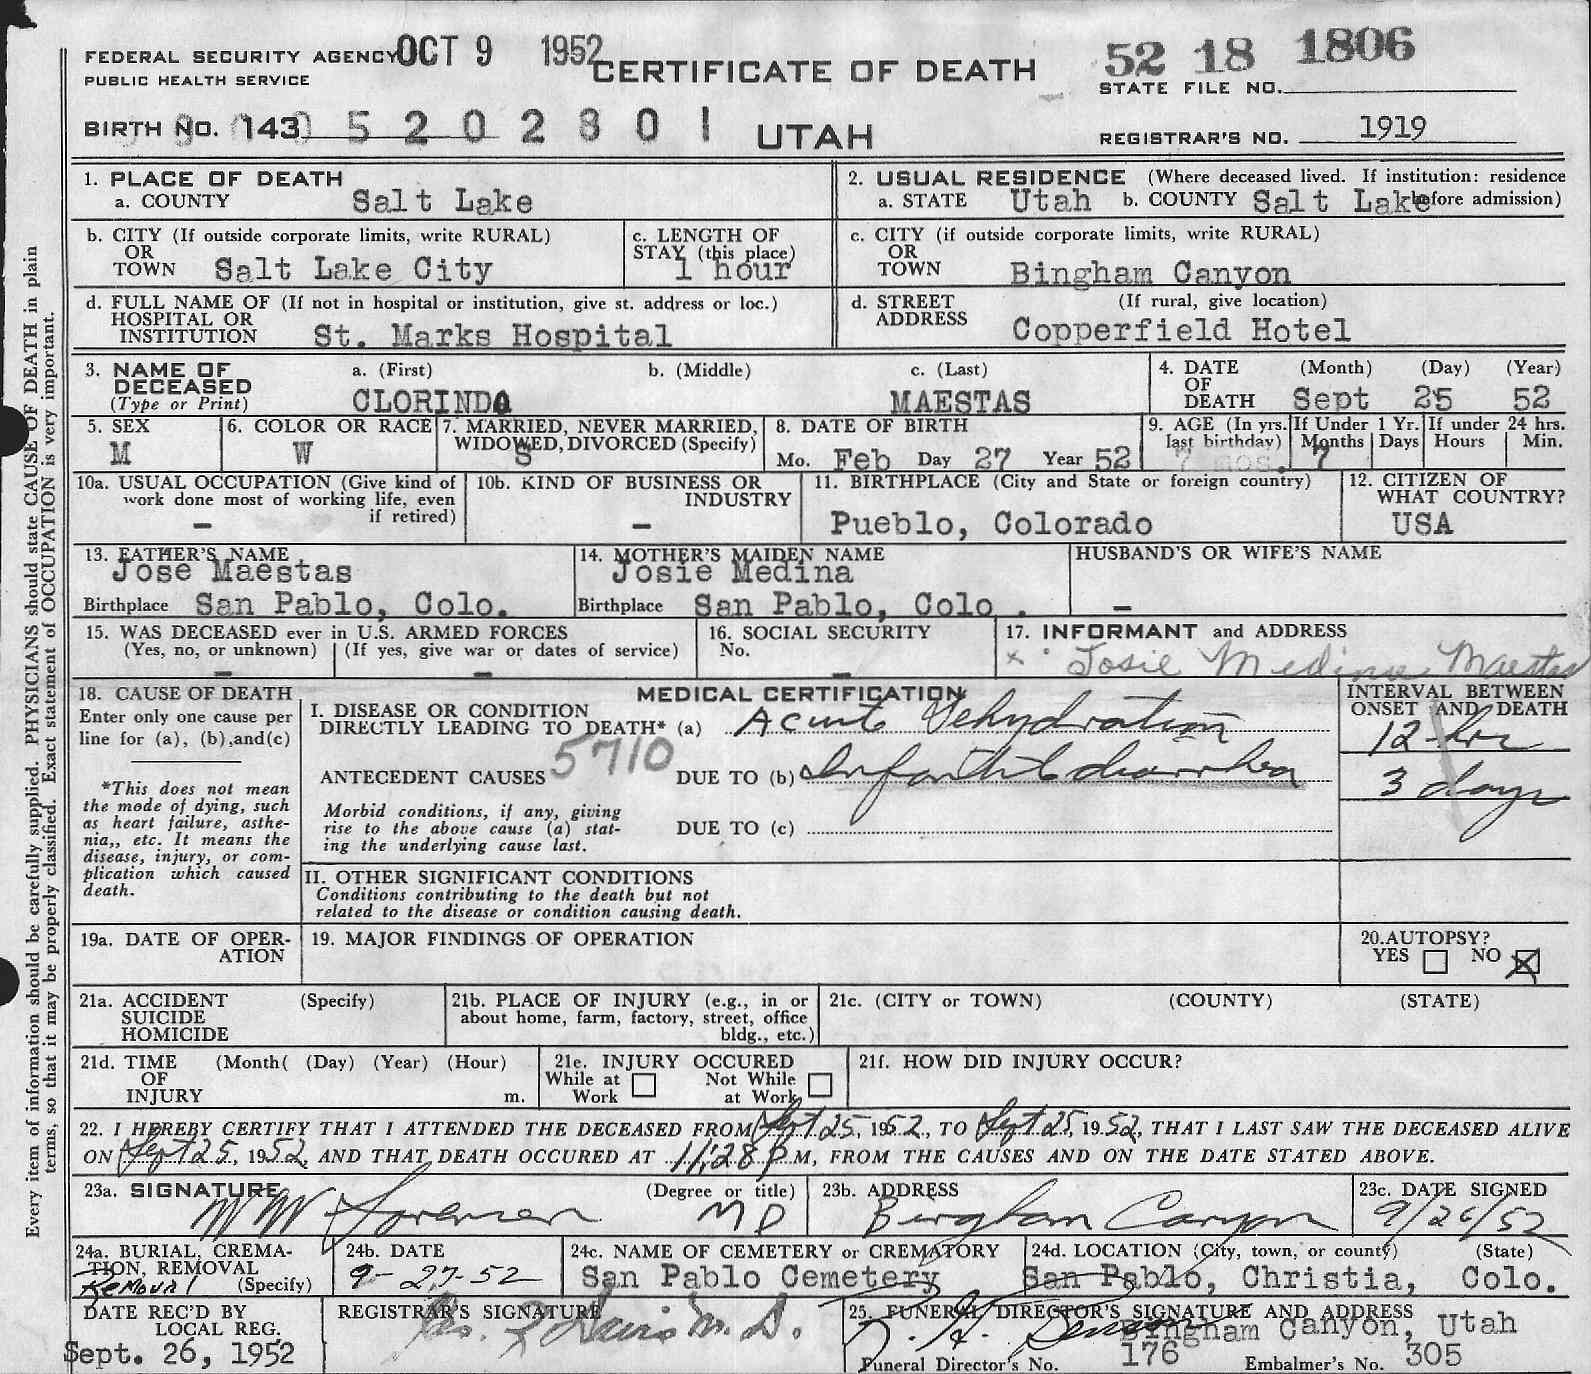 FEDERAL SECURITY AGENCY OCT 9 1952 CERTIFICATE OF DEATH 52 18 1806
PUBLIC HEALTH SERVICE STATE FILE NO.
BIRTH NO. 143 5 2 0 2 8 0 1 UTAH REGISTRAR'S NO. 1919
1. PLACE OF DEATH
a. COUNTY Salt Lake
2. USUAL RESIDENCE (Where deceased lived. If institution: residence before admission)
a. STATE Utah b. COUNTY Salt Lake
b. CITY (If outside corporate limits, write RURAL)
OR
TOWN Salt Lake City
c. LENGTH OF
STAY (this place)
1 hour
c. CITY (if outside corporate limits, write RURAL)
OR
TOWN Bingham Canyon
d. FULL NAME OF (If not in hospital or institution, give st. address or loc.)
HOSPITAL OR
INSTITUTION St. Marks Hospital
d. STREET (If rural, give location)
ADDRESS Copperfield Hotel
3. NAME OF a. (First) b. (Middle) c. (Last)
DECEASED
(Type or Print) CLORINDO MAESTAS
4. DATE (Month) (Day) (Year)
OF
DEATH Sept 25 52
5. SEX
M
6. COLOR OR RACE
W
7. MARRIED, NEVER MARRIED,
WIDOWED, DIVORCED (Specify)
S
8. DATE OF BIRTH
Mo. Feb Day 27 Year 52
9. AGE (In yrs. last birthday) 7 mos.
If Under 1 Yr. Months 7 Days
If under 24 hrs. Hours Min.
10a. USUAL OCCUPATION (Give kind of
work done most of working life, even
if retired)
–
10b. KIND OF BUSINESS OR
INDUSTRY
–
11. BIRTHPLACE (City and State or foreign country)
Pueblo, Colorado
12. CITIZEN OF
WHAT COUNTRY?
USA
13. FATHER'S NAME
Jose Maestas
Birthplace San Pablo, Colo.
14. MOTHER'S MAIDEN NAME
Josie Medina
Birthplace San Pablo, Colo .
HUSBAND'S OR WIFE'S NAME
–
15. WAS DECEASED ever in U.S. ARMED FORCES
(Yes, no, or unknown) (If yes, give war or dates of service)
– –
16. SOCIAL SECURITY
No.
–
17. INFORMANT and ADDRESS
x Josie Medina Maestas
18. CAUSE OF DEATH
Enter only one cause per
line for (a), (b), and (c)
*This does not mean
the mode of dying, such
as heart failure, asthe-
nia,, etc. It means the
disease, injury, or com-
plication which caused
death.
MEDICAL CERTIFICATION
I. DISEASE OR CONDITION
DIRECTLY LEADING TO DEATH* (a) Acute Dehydration
5710
ANTECEDENT CAUSES DUE TO (b) Infantile diarrhea
Morbid conditions, if any, giving
rise to the above cause (a) stat-
ing the underlying cause last.
DUE TO (c)
INTERVAL BETWEEN
ONSET AND DEATH
12 hrs
3 days
II. OTHER SIGNIFICANT CONDITIONS
Conditions contributing to the death but not
related to the disease or condition causing death.
19a. DATE OF OPER-
ATION
19. MAJOR FINDINGS OF OPERATION
20. AUTOPSY?
YES NO X
21a. ACCIDENT (Specify)
SUICIDE
HOMICIDE
21b. PLACE OF INJURY (e.g., in or
about home, farm, factory, street, office
bldg., etc.)
21c. (CITY or TOWN) (COUNTY) (STATE)
21d. TIME (Month( (Day) (Year) (Hour)
OF
INJURY m.
21e. INJURY OCCURED
While at Work Not While at Work
21f. HOW DID INJURY OCCUR?
22. I HEREBY CERTIFY THAT I ATTENDED THE DECEASED FROM Sept 25, 1952, TO Sept 25, 1952, THAT I LAST SAW THE DECEASED ALIVE
ON Sept 25, 1952, AND THAT DEATH OCCURED AT 11:28 P.M, FROM THE CAUSES AND ON THE DATE STATED ABOVE.
23a. SIGNATURE (Degree or title)
W M Sorensen MD
23b. ADDRESS
Bingham Canyon
23c. DATE SIGNED
9/26/52
24a. BURIAL, CREMA-
TION, REMOVAL
Removal (Specify)
24b. DATE
9-27-52
24c. NAME OF CEMETERY or CREMATORY
San Pablo Cemetery
24d. LOCATION (City, town, or county) (State)
San Pablo, Christia, Colo.
DATE REC'D BY
LOCAL REG.
Sept. 26, 1952
REGISTRAR'S SIGNATURE
Davis M. D.
25. FUNERAL DIRECTOR'S SIGNATURE AND ADDRESS
Bingham Canyon, Utah
Funeral Director's No. 176 Embalmer's No. 305
Every item of information should be carefully supplied. PHYSICIANS should state CAUSE OF DEATH in plain
terms, so that it may be properly classified. Exact statement of OCCUPATION is very important.